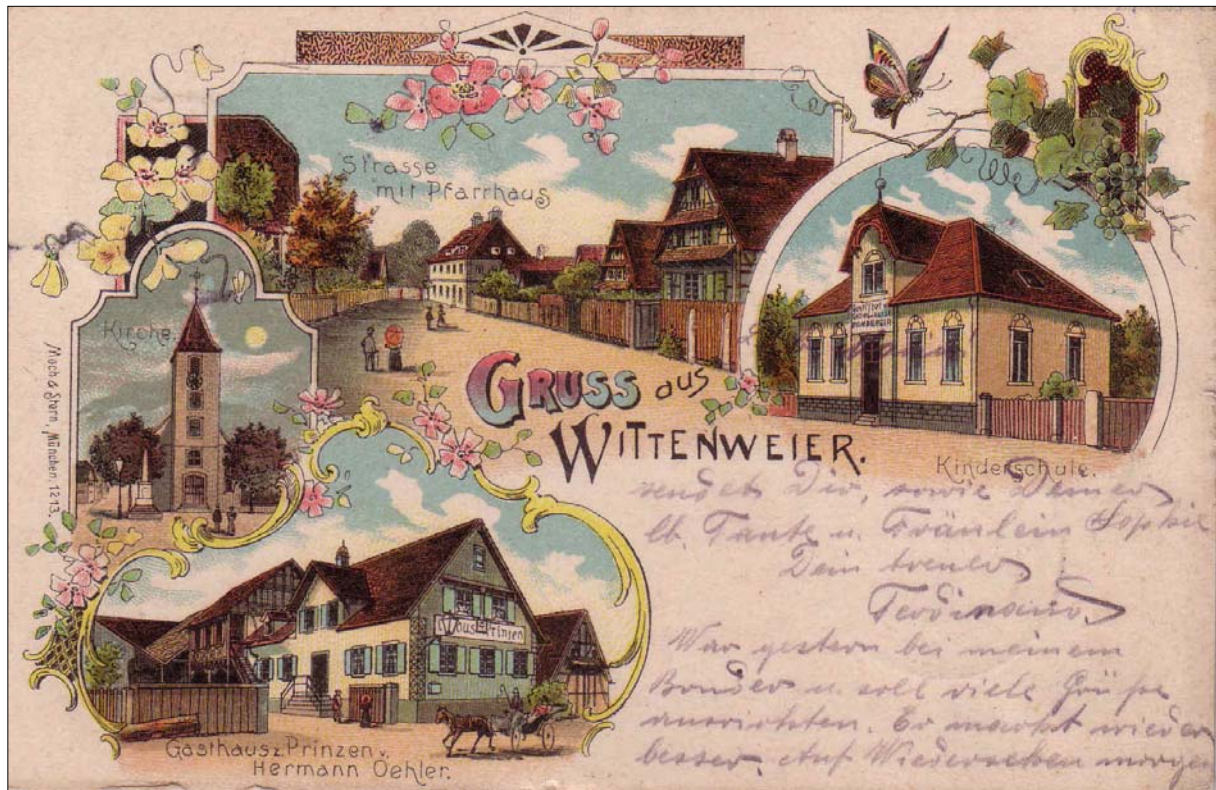 Strasse
mit Pfarrhaus
Kirche.
Moch & Stern, München. 1213.
GRUSS aus
WITTENWEIER.
Kinderschule.
Gasthaus z. Prinzen v.
Hermann Oehler.
sendet Dir, sowie Deiner
lb. Tante u. Fräulein Sophie
Dein treuer
Ferdinand
War gestern bei meinem
Bruder u. soll viele Grüße
ausrichten. Er macht wieder
besser. Auf Wiedersehen morgen